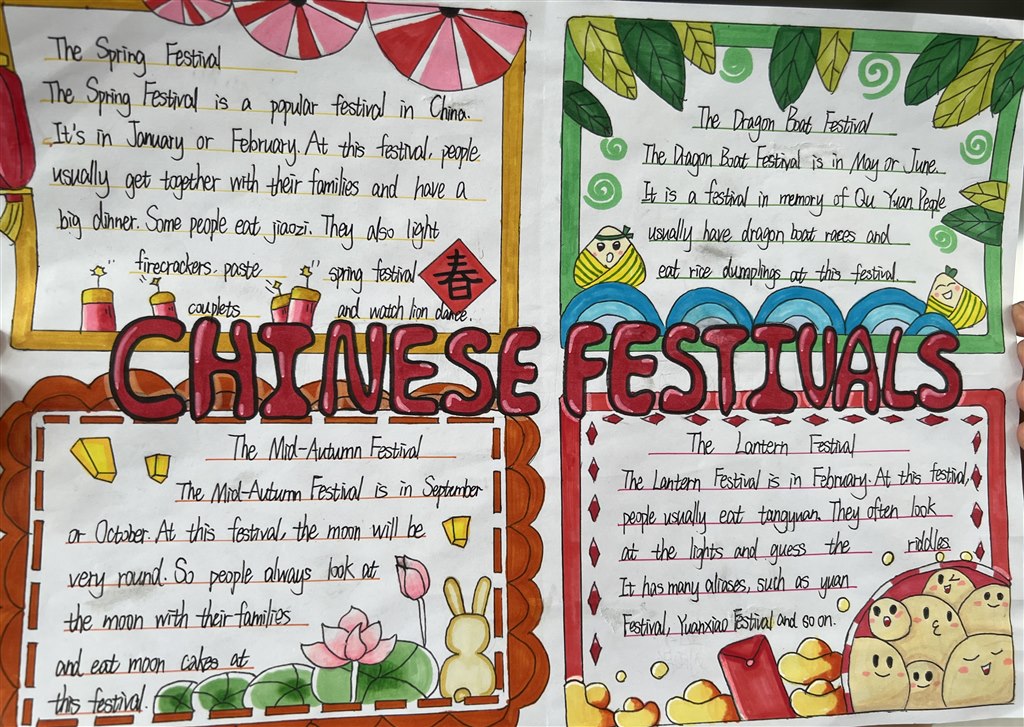 The Spring Festival
The Spring Festival is a popular festival in China.
It's in January or February. At this festival, people
usually get together with their families and have a
big dinner. Some people eat jiaozi. They also light
firecrackers, paste spring festival
couplets and watch lion dance.
春
The Dragon Boat Festival
The Dragon Boat Festival is in May or June.
It is a festival in memory of Qu Yuan People
usually have dragon boat races and
eat rice dumplings at this festival.
CHINESE FESTIVALS
The Mid-Autumn Festival
The Mid-Autumn Festival is in September
or October. At this festival, the moon will be
very round. So people always look at
the moon with their families
and eat moon cakes at
this festival.
The Lantern Festival
The Lantern Festival is in February. At this festival,
people usually eat tangyuan. They often look
at the lights and guess the riddles.
It has many aliases, such as yuan
Festival, Yuanxiao Festival and so on.